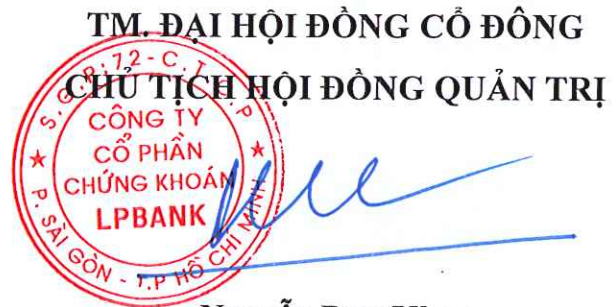 TM. ĐẠI HỘI ĐỒNG CỔ ĐÔNG
CHỦ TỊCH HỘI ĐỒNG QUẢN TRỊ
CÔNG TY
CỔ PHẦN
CHỨNG KHOÁN
LPBANK
P. SÀI GÒN - T.P HỒ CHÍ MINH